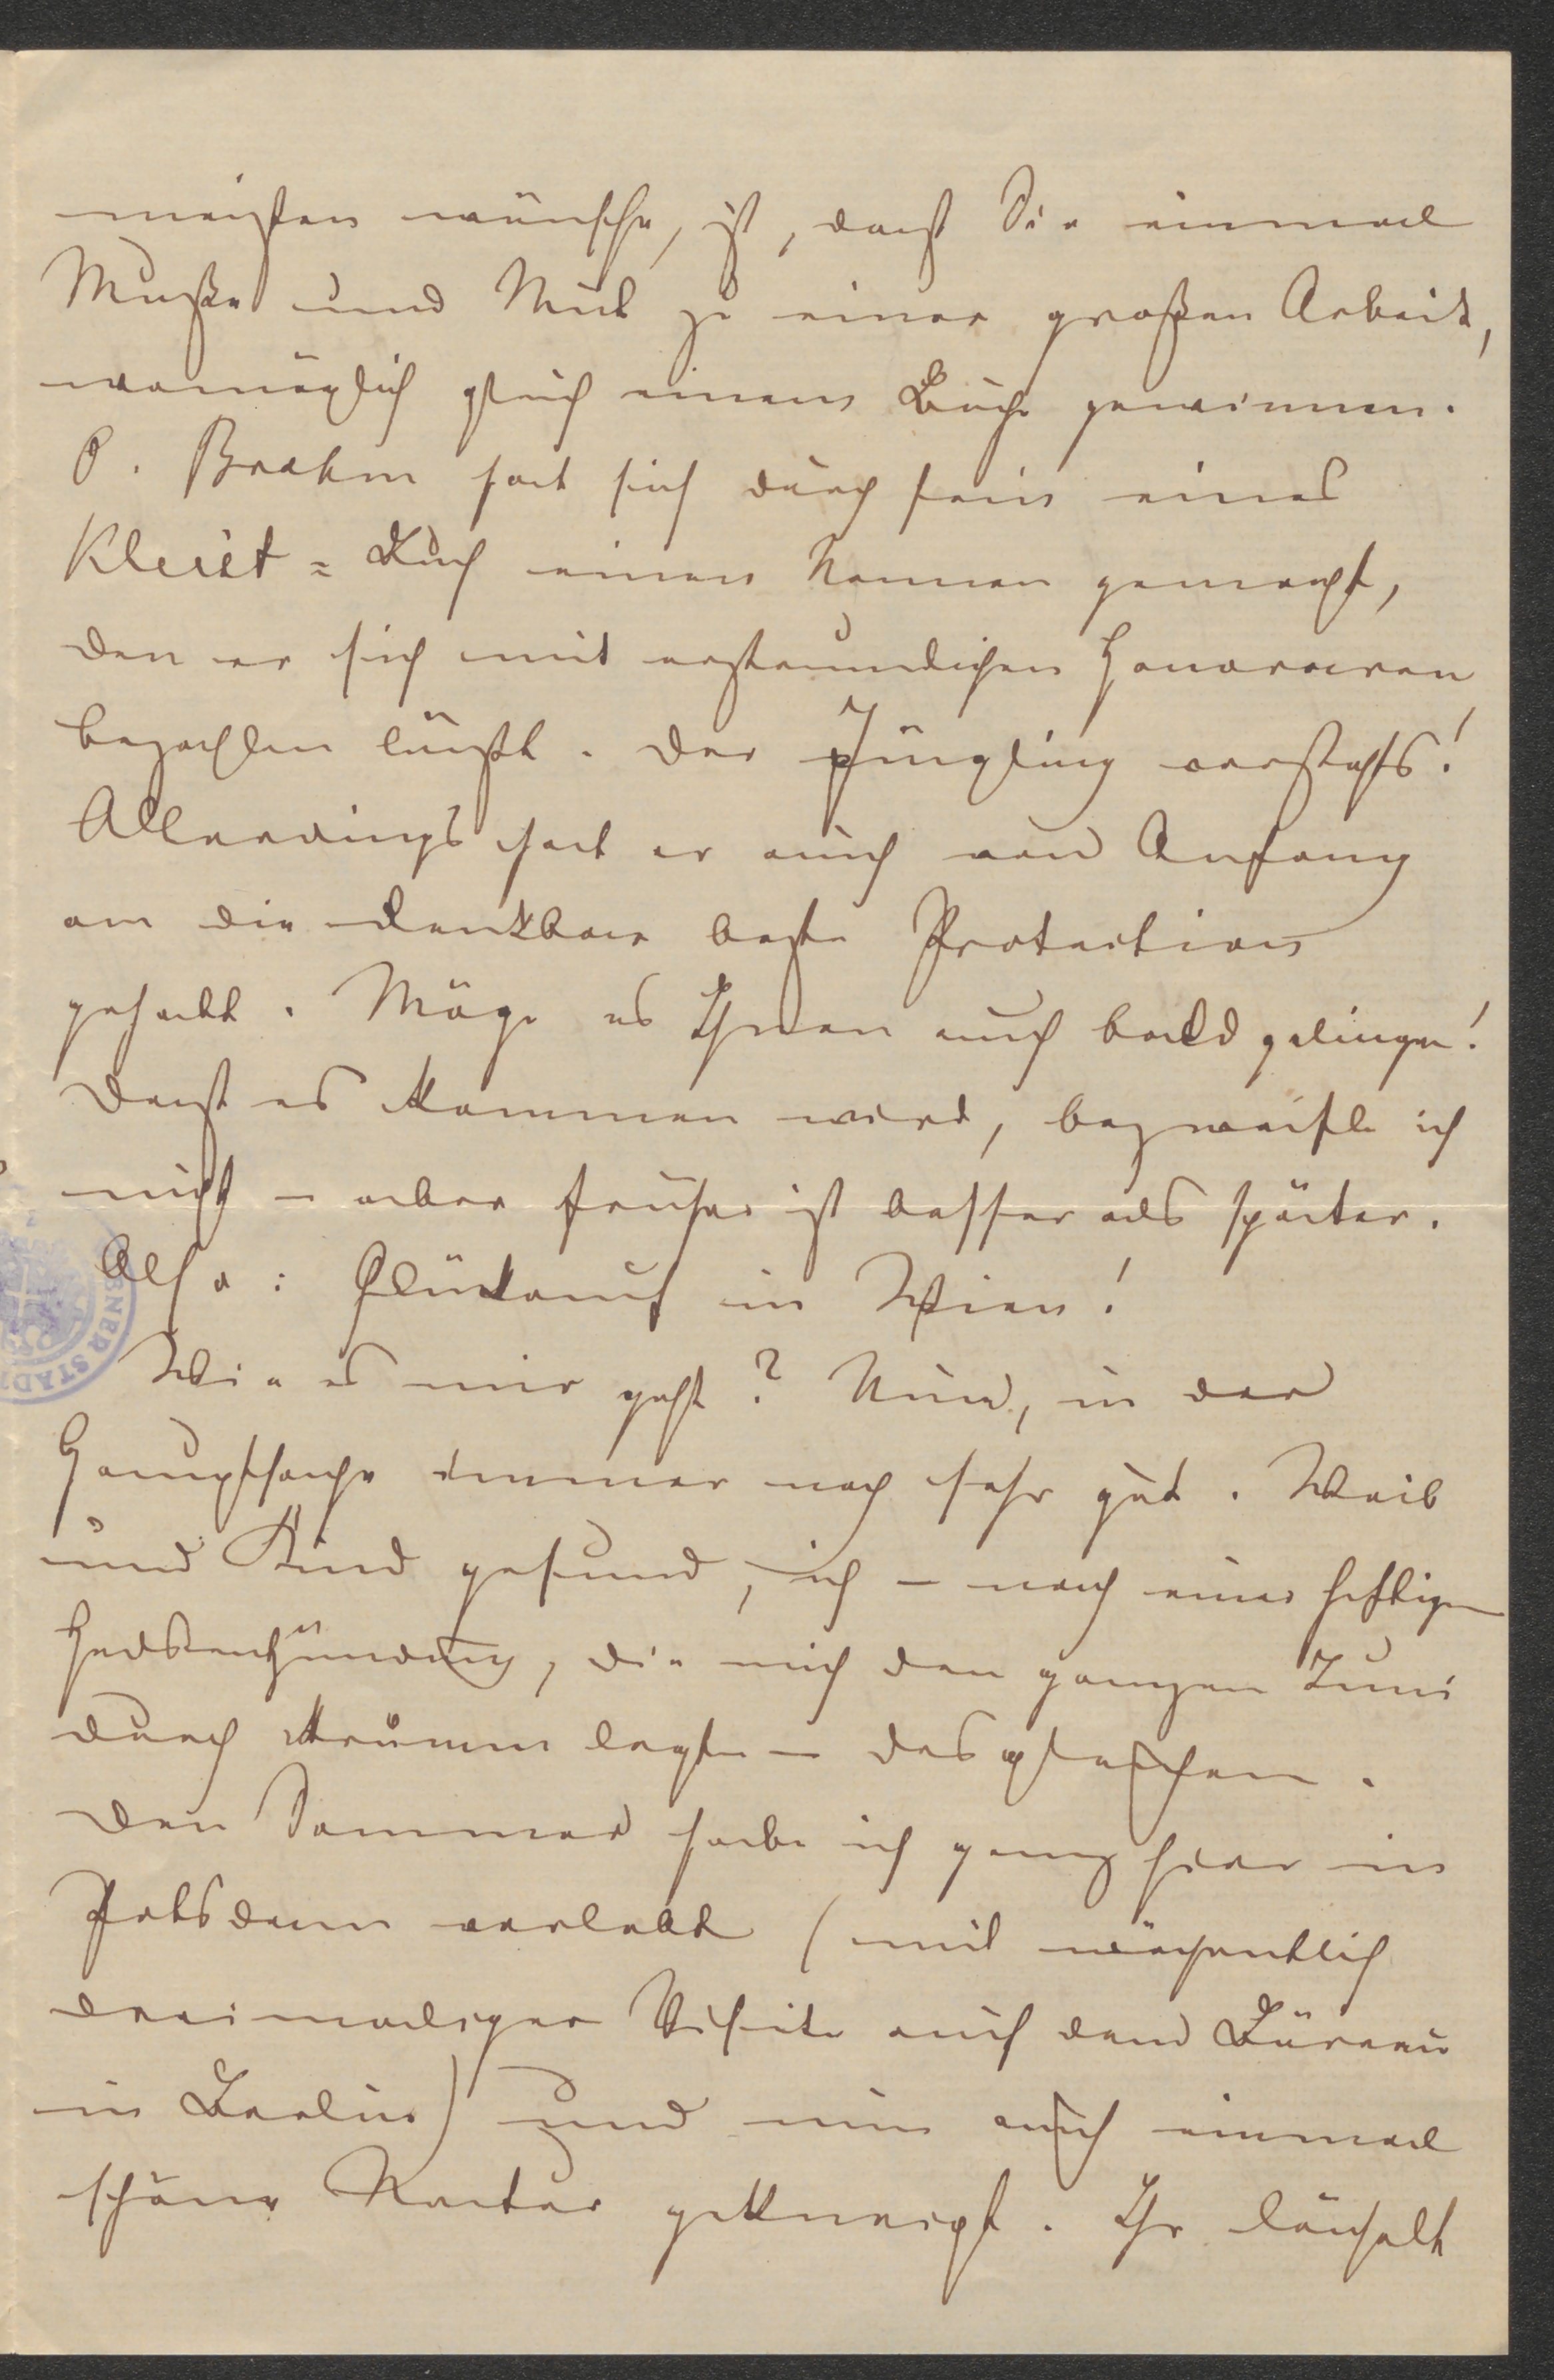 meisten wünsche, ist, dass Sie einmal
Muße und Mut zu einer großen Arbeit,
womöglich gleich einem Buche gewinnen.
O. Brahm hat sich durch sein eines
Kleist-Buch einen Namen gemacht,
den er sich mit erstaunlichen Honoraren
bezahlen läßt. Der Jüngling versteht's!
Allerdings hat er auch von Anfang
an die denkbar beste Protection
gehabt. Möge es Ihnen auch bald gelingen!
Dass es kommen wird, bezweifle ich
nicht – aber früher ist besser als später.
Also: Glückauf in Wien!
Wie es mir geht? Nun, in der
Hauptsache immer noch sehr gut. Weib
und Kind gesund, ich – nach einer heftigen
die mich den ganzen Juni
durch krumm legte – desgleichen.
Den Sommer habe ich ganz hier in
Potsdam verlebt (mit wöchentlich
dreimaliger Visite auf dem Büreau
in Berlin) und nun auch einmal
schöne Natur gekneipt. Ihr lächelt